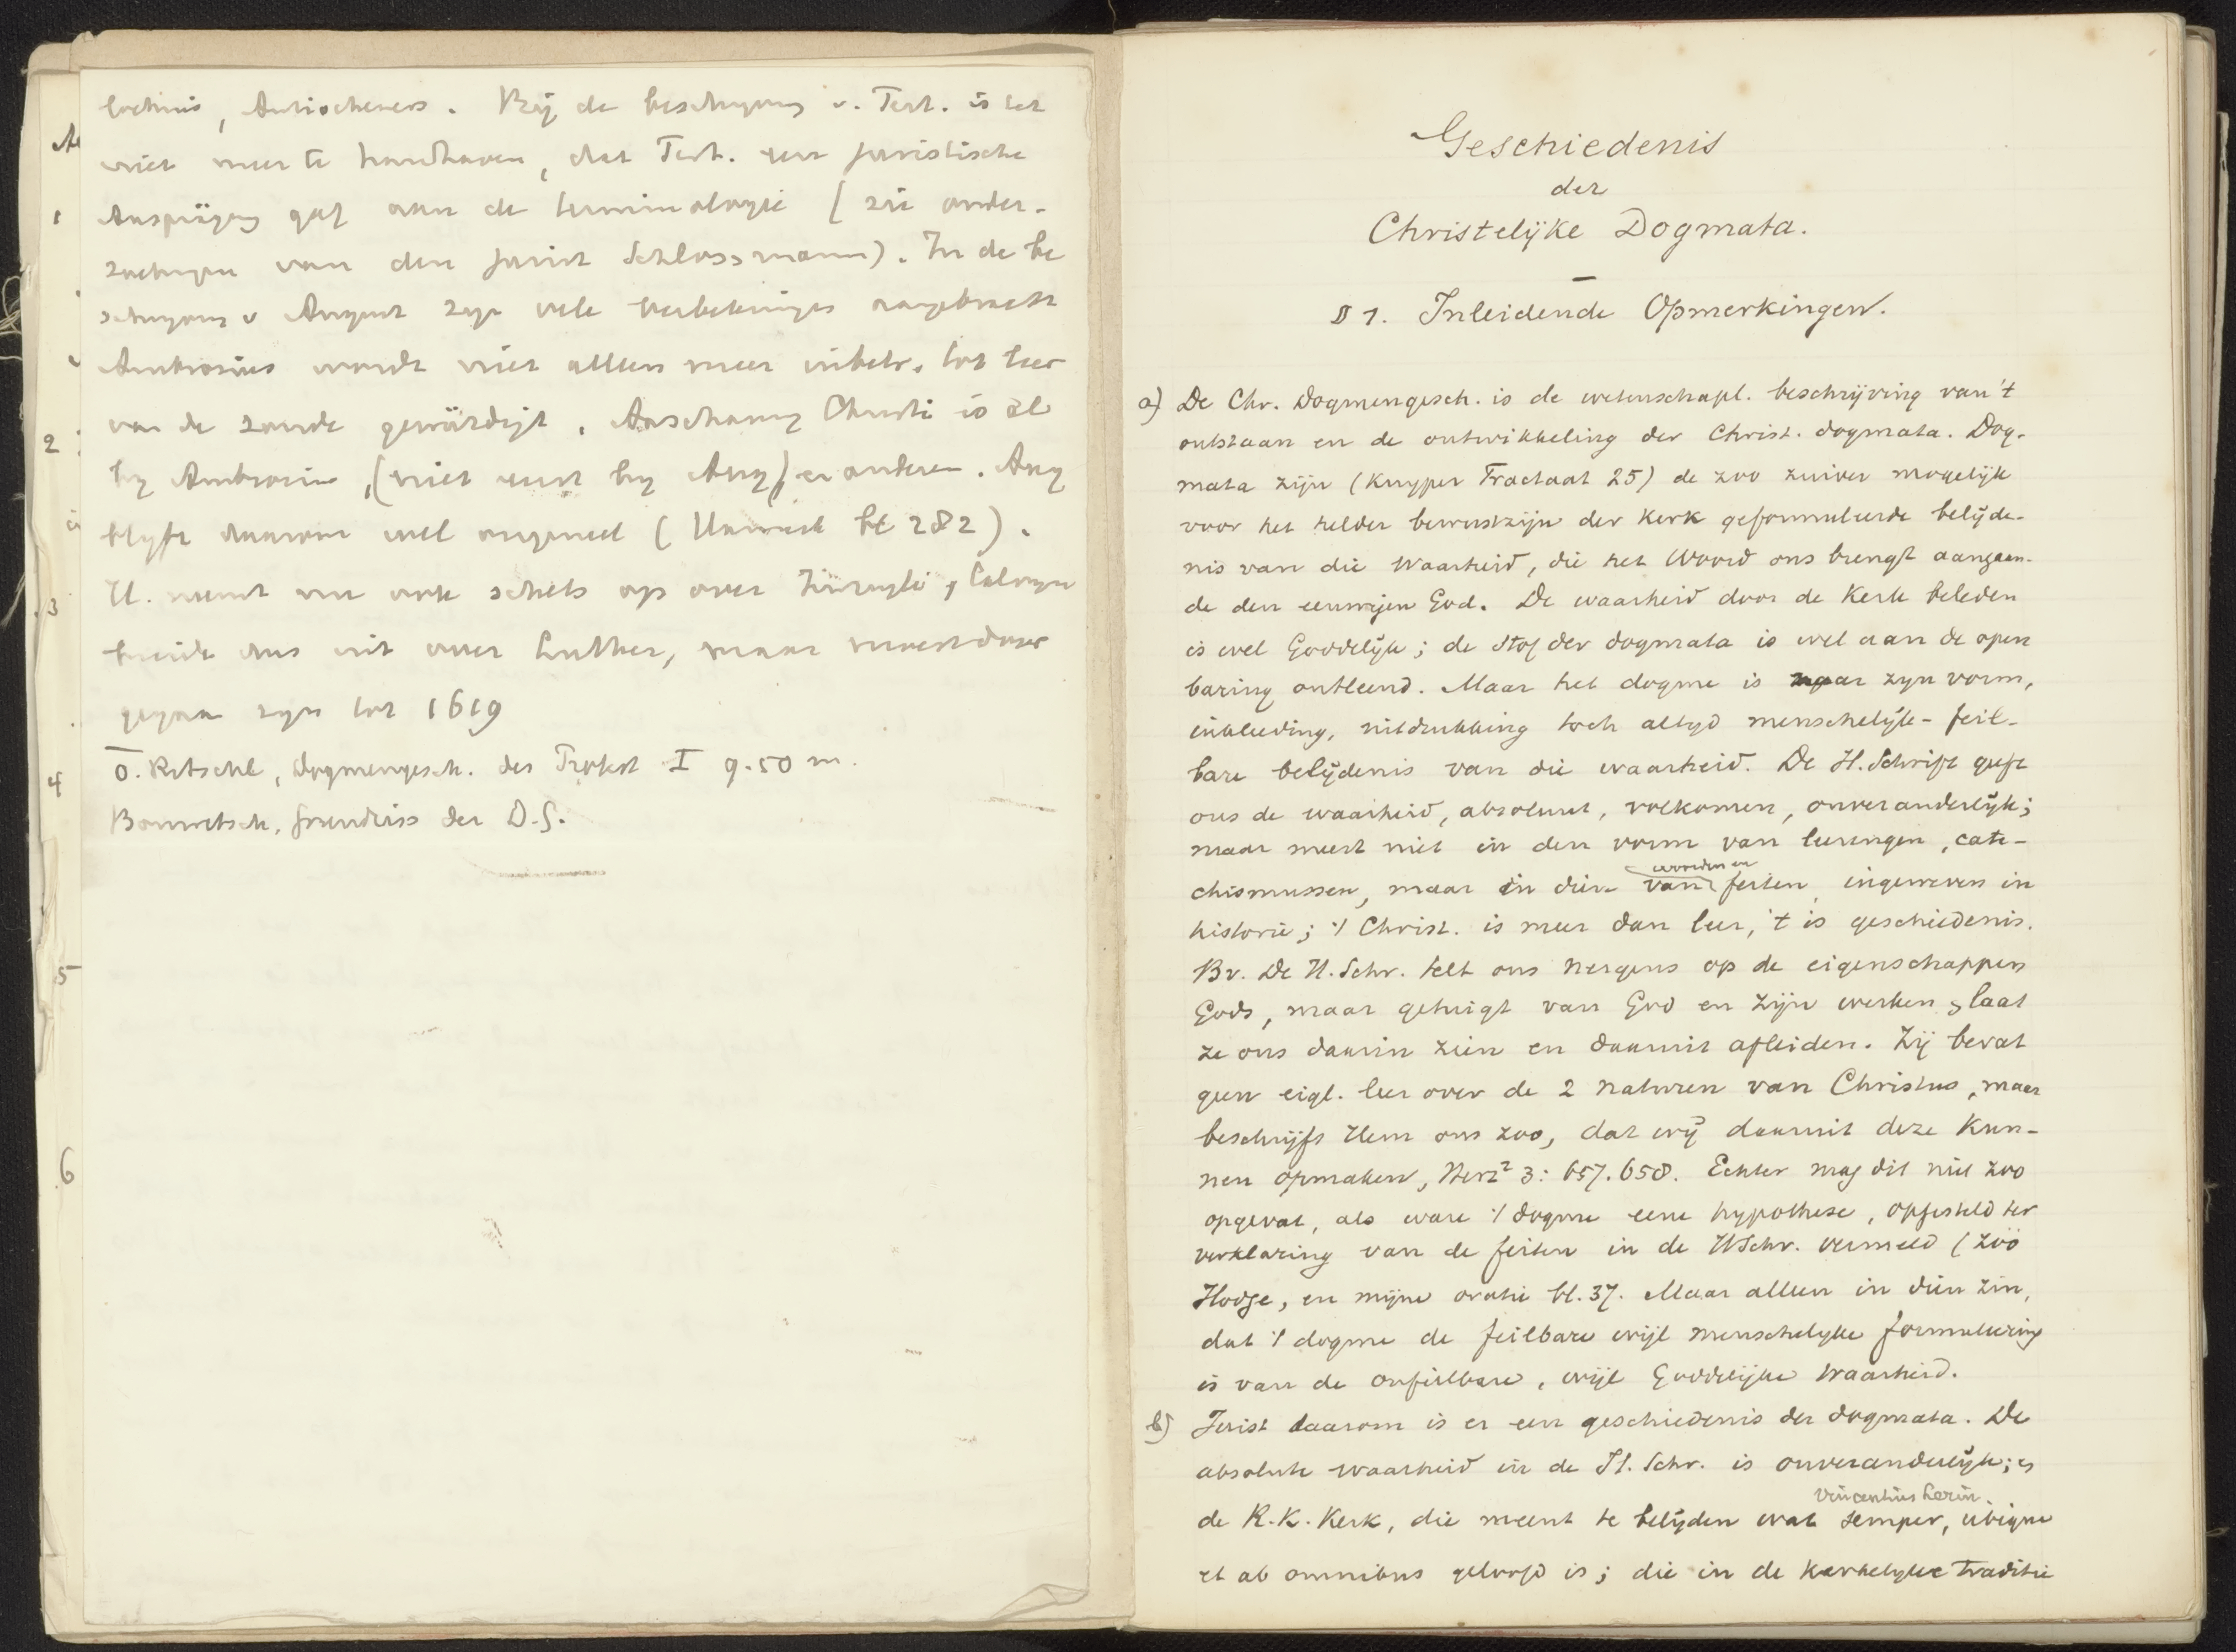 Antiochenes. Bij de beschryving v. Tert. is het
niet meer te handhaven, dat Tert. een juristische
Ausprägung gaf aan de terminologie (zie onder-
zoekingen van den jurist Schlossmann). In de be
schryving v August zyn vele verbeteringen aangebracht
Ambrosius wordt niet alleen meer
van de zonde gewürdigt. Anschauung Christi is al
by Ambrosius, (niet eerst by Aug) en anderen. Aug
blyft daarom wel origineel ( bl 282).
H. neemt nu ook schets op over Zwingli, Calvyn
breidt dus uit over Luther, maar moest door
gegaan zyn tot 1619
O. Ritschl, Dogmengesch. des Protest I 9.50 m.
Bonwetsch, Grundriss der D.G.
1
2
3
4
5
6
Geschiedenis
der
Christelijke Dogmata.
§ 1. Inleidende Opmerkingen.
a) De Chr. Dogmengesch. is de wetenschapl. beschrijving van 't
ontstaan en de ontwikkeling der Christ. dogmata. Dog-
mata zijn (Kuyper Tractaat 25) de zoo zuiver mogelijk
voor het helder bewustzijn der Kerk geformuleerde belijde-
nis van die Waarheid, die het Woord ons brengt aangaan-
de den eeuwigen God. De waarheid door de Kerk beleden
is wel Goddelijk; de stof der dogmata is wel aan de open
baring ontleend. Maar het dogme is naar zyn vorm,
inkleeding, uitdrukking toch altyd menschelijk-feil-
bare belijdenis van die waarheid. De H. Schrift geeft
ons de waarheid, absoluut, volkomen, onveranderlijk;
maar meest niet in den vorm van leeringen, cate-
chismussen, maar in dien van woorden en feiten, ingeweven in
historie; 't Christ. is meer dan leer, 't is geschiedenis.
Bv. De H. Schr. telt ons nergens op de eigenschappen
Gods, maar getuigt van God en zijn werken & laat
ze ons daarin zien en daaruit afleiden. Zij bevat
geen eigl. leer over de 2 naturen van Christus, maar
beschrijft Hem ons zoo, dat wij daaruit deze kun-
nen opmaken, Herz² 3: 657.658. Echter mag dit niet zoo
opgevat, als ware 't dogme eene hypothese, opgesteld ter
verklaring van de feiten in de HSchr. vermeld (zoo
Hodge, en mijne oratie bl. 37. Maar alleen in dien zin,
dat 't dogme de feilbare wijl menschelyke formuleering
is van de onfeilbare, wijl Goddelijke waarheid.
b) Juist daarom is er een geschiedenis der dogmata. De
absolute waarheid in de H. Schr. is onveranderlijk; &
Vincentius Lerin.
de R.K. Kerk, die meent te belijden wat semper, ubique
et ab omnibus geloofd is; die in de kerkelyke traditie